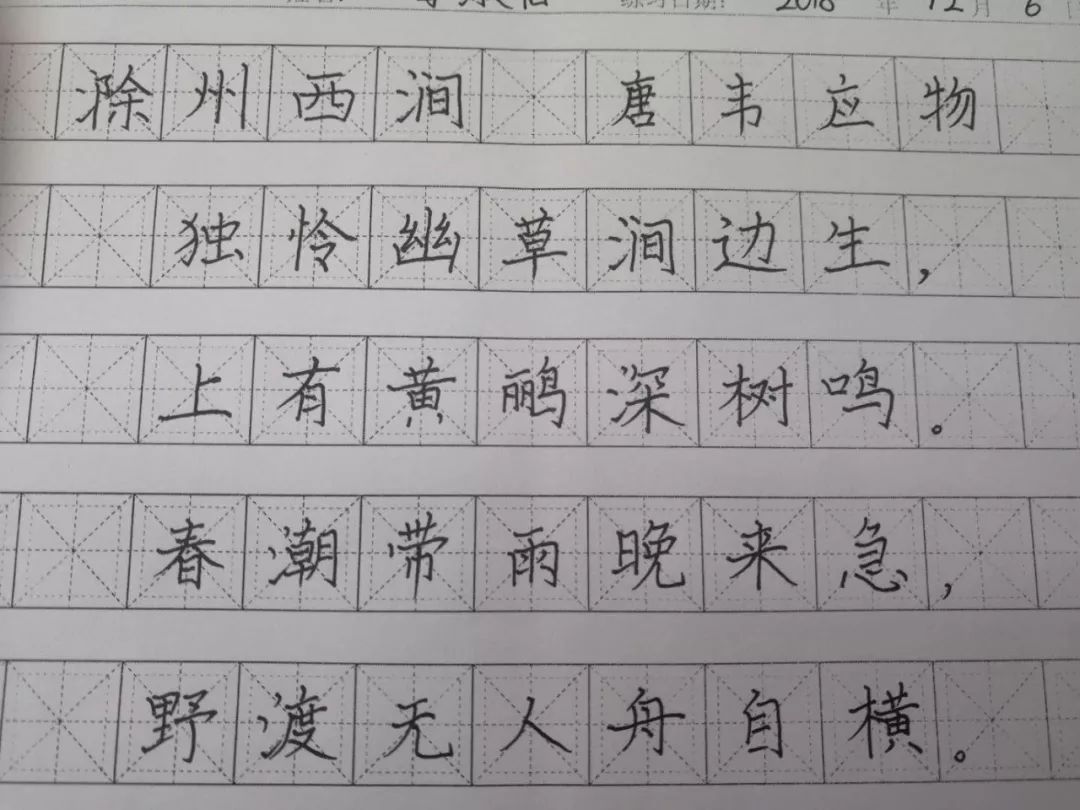 练习日期： 2018 年 12 月 6
滁州西涧 唐韦应物
独怜幽草涧边生，
上有黄鹂深树鸣。
春潮带雨晚来急，
野渡无人舟自横。